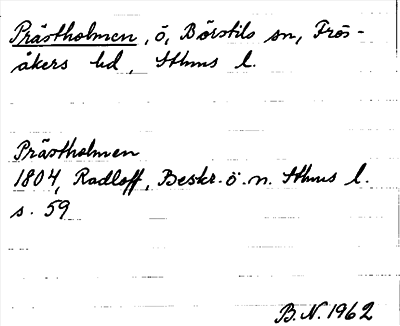 Prästholmen, ö, Börstils sn, Frös-
åkers hd, Sthms l.
Prästholmen
1804, Radloff, Beskr. ö. n. Sthms l.
s. 59
B.N. 1962